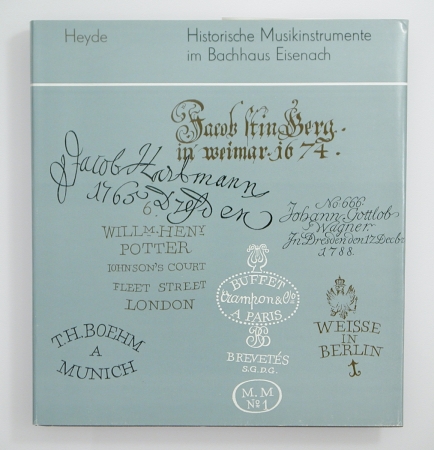 Heyde
Historische Musikinstrumente
im Bachhaus Eisenach
in weimar 1674.
Jacob Hartmann
1765 Dresden
6.
No 666
Johann Gottlob
Wagner
In Dresden den 17 Decb
1788.
WILLM. HENY
POTTER
JOHNSON'S COURT
FLEET STREET
LONDON
BUFFET
Crampon & Cie
A PARIS
BREVETÉS
S.G.D.G.
M. M.
No 1
WEISSE
IN
BERLIN
T.H. BOEHM
A
MUNICH